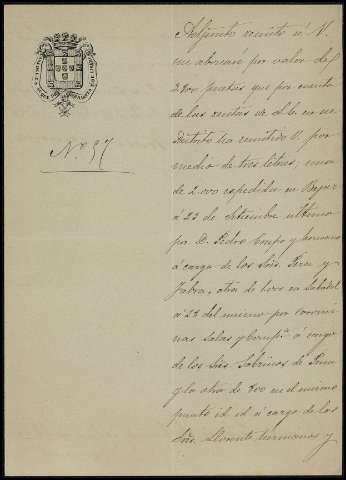 Nº 97
Adjunto remito á V.
un abonaré por valor de
2.800 pesetas que por cuenta
de las rentas de d/c en ese
Distrito ha remitido V. por
medio de tres letras; una
de 2.000 espedida en Bejar
á 23 de Setiembre último
por D. Pedro Crespo y hermano
á cargo de los Sres. y
otra de en Sabadell
á 22 del mismo por
Salas y Compª á cargo
de los Sres. Sobrinos de
y la otra de 700 en el mismo
punto id. id. á cargo de los
Sres. Llorente hermanos y